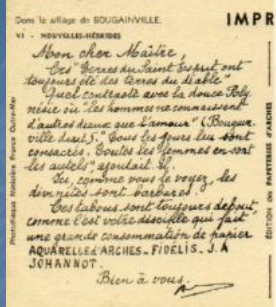 Dans le sillage de BOUGAINVILLE.
IMPR
VI - NOUVELLES-HÉBRIDES
Mon cher Maître,
Ces "Terres du Saint Esprit ont
toujours été des terres du diable"
Quel contraste avec la douce Poly
nésie où "les hommes ne connaissent
d'autres dieux que l'amour" (Bougain
ville dixit). "Tous les jours lui sont
consacrés. Toutes les femmes en sont
les autels", ajoutait-il.
Ici, comme vous le voyez, les
devinités sont barbares.
Ces tabous sont toujours debout
comme l'est votre disciple qui fait
une grande consommation de papier
AQUARELLE d'ARCHES - FIDELIS. J.A
JOHANNOT.
Bien à vous.
Photothèque Ministère France Outre-Mer
ÉDITION des PAPETERIES d'ARCHES